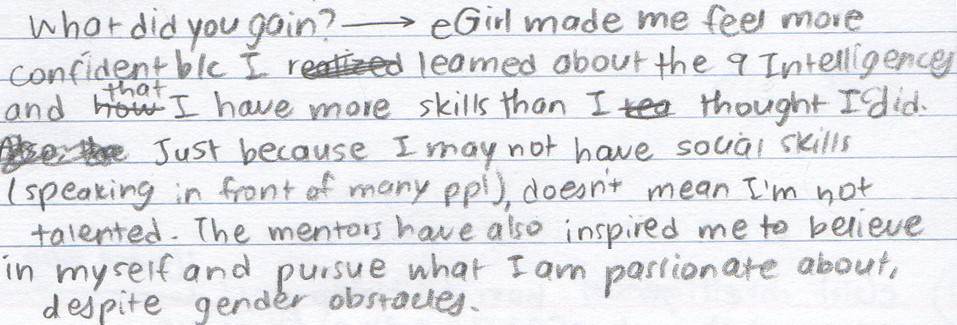 What did you gain? → eGirl made me feel more
confident b/c I realized learned about the 9 Intelligences
and how that I have more skills than I thought I did.
Just because I may not have social skills
(speaking in front of many ppl), doesn't mean I'm not
talented. The mentors have also inspired me to believe
in myself and pursue what I am passionate about,
despite gender obstacles.